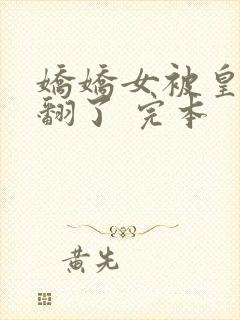 嬌嬌女被皇
翻了 完本
黃先